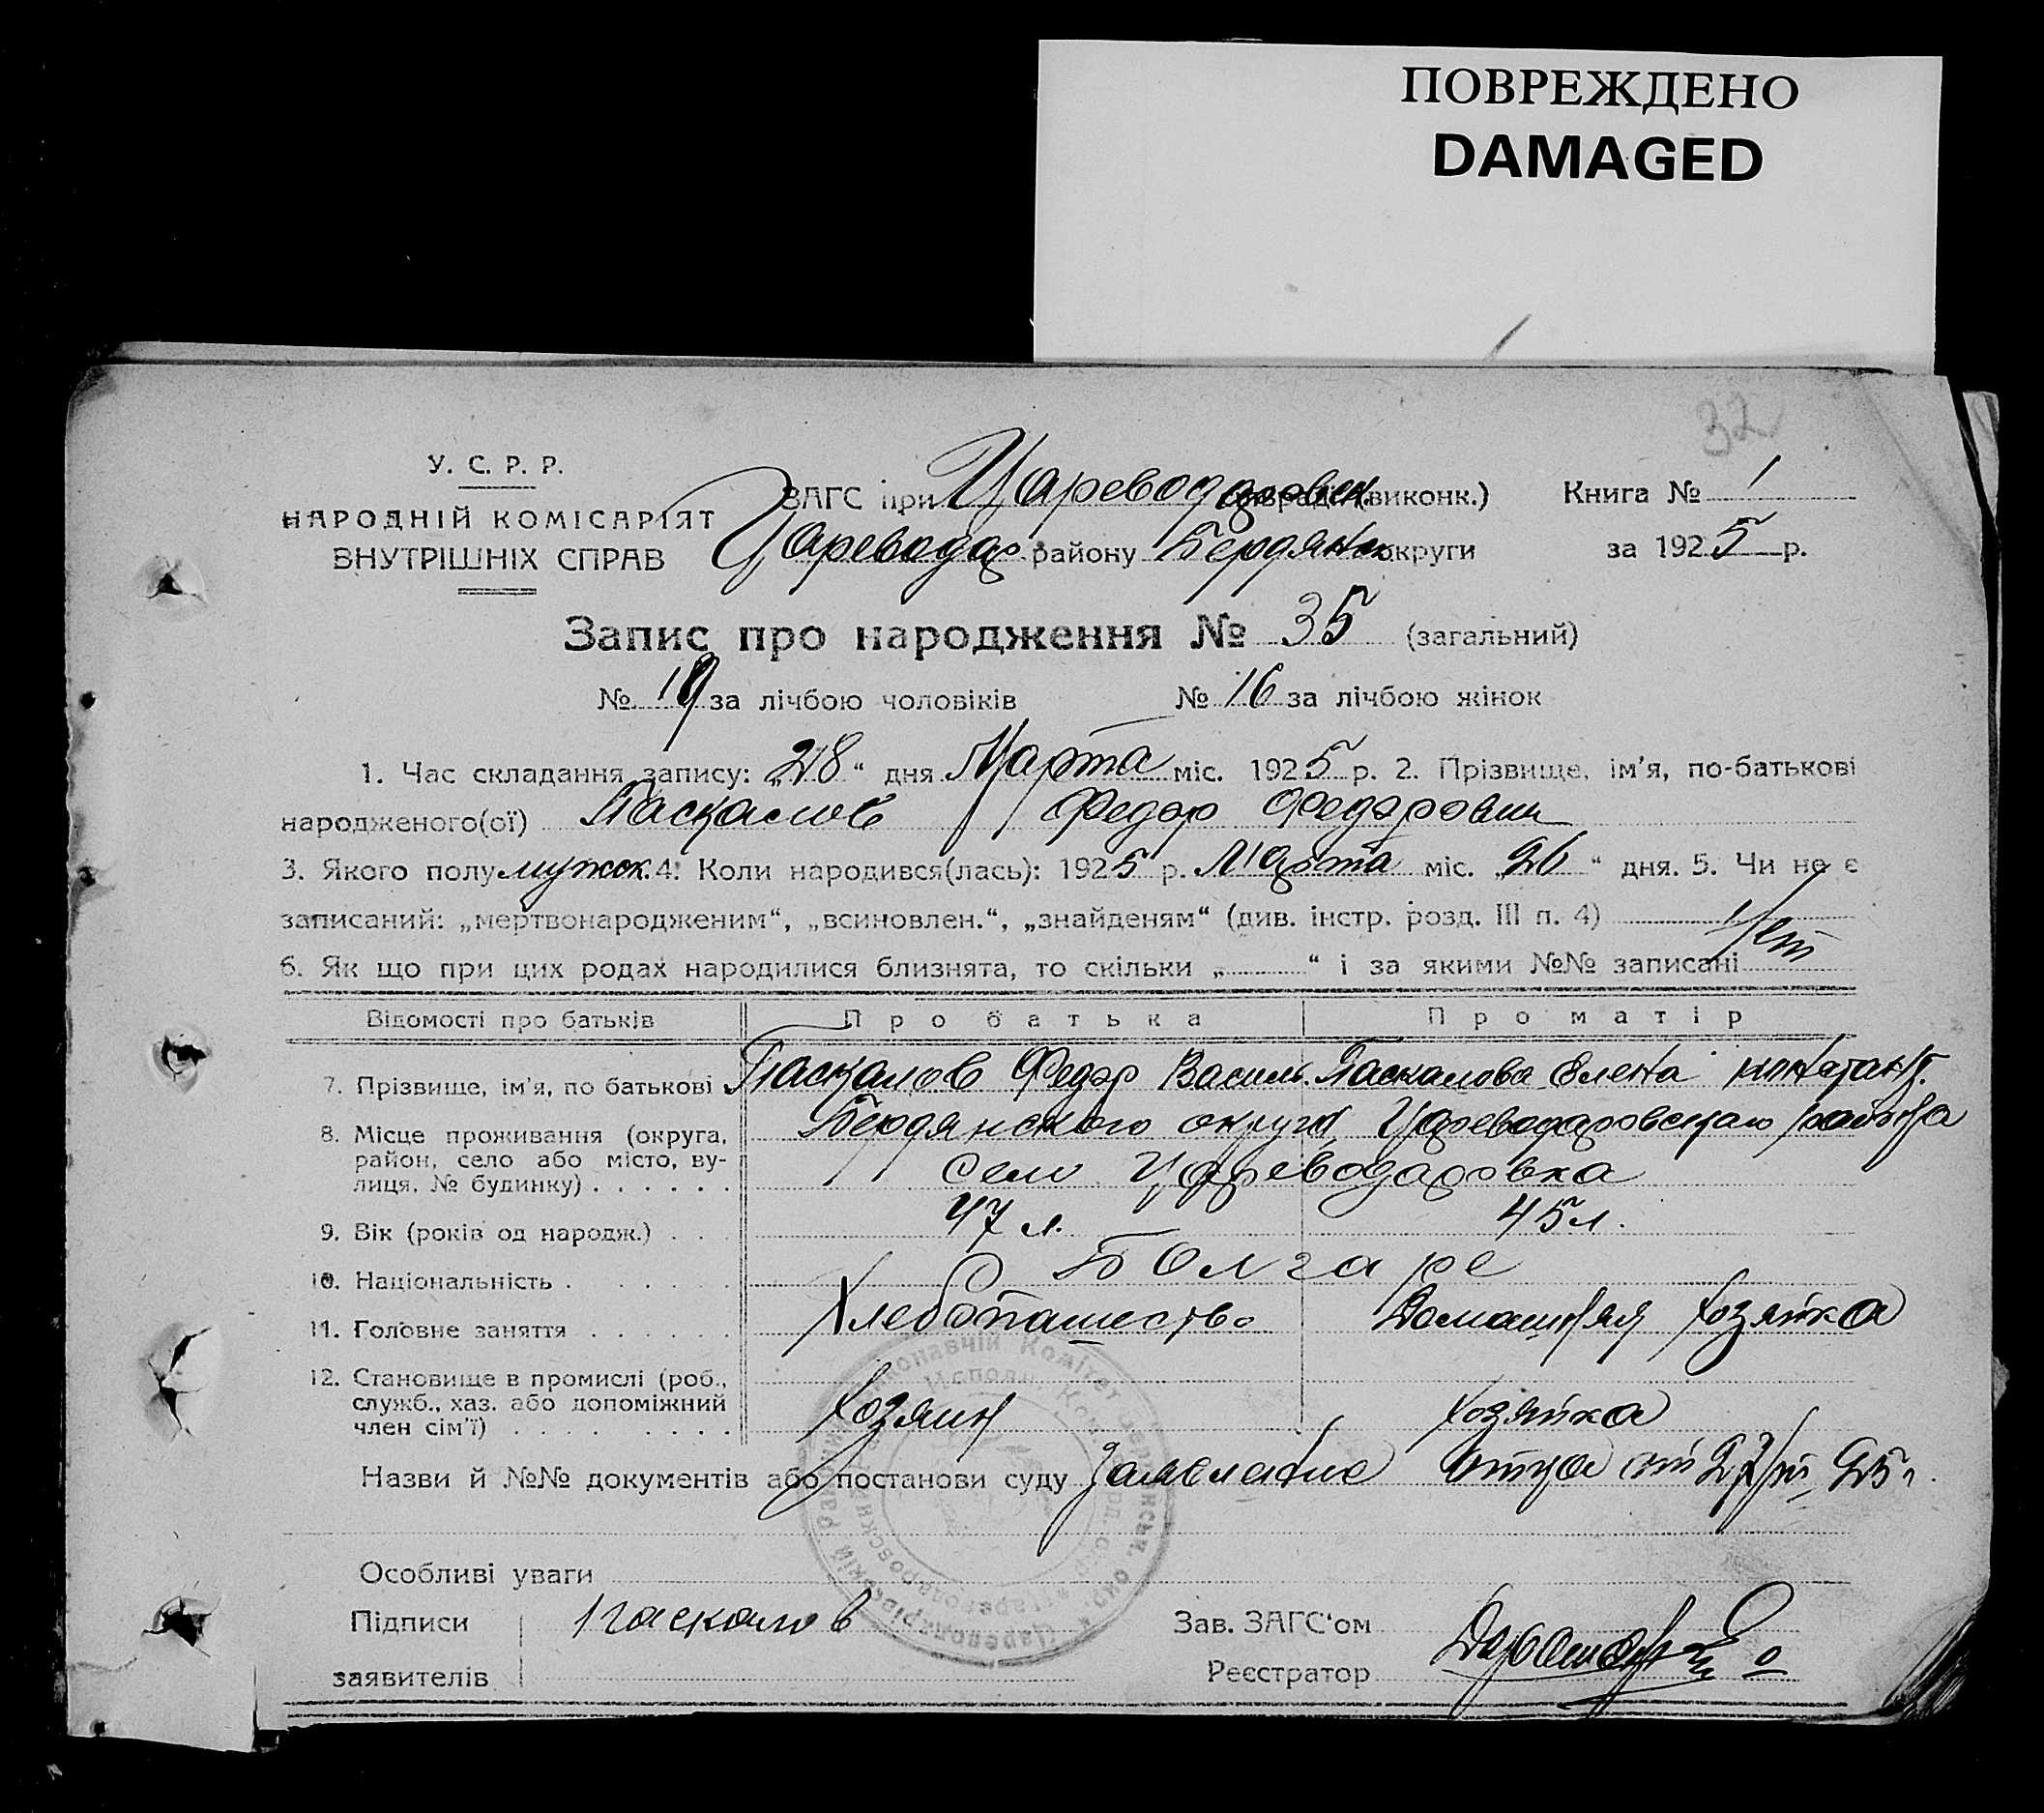 ПОВРЕЖДЕНО
DAMAGED
32
У. С. Р. Р.
НАРОДНІЙ КОМІСАРІЯТ
ВНУТРІШНІХ СПРАВ
ЗАГС при Цареводаровск. (виконк.)
Книга № 1
Цареводар. району Бердянск округи
за 1925 р.
Запис про народження № 35 (загальний)
№ 19 за лічбою чоловіків № 16 за лічбою жінок
1. Час складання запису: „28“ дня Марта міс. 1925 р. 2. Прізвище, ім'я, по-батькові
народженого(ої) Паскалов Федор Федорович
3. Якого полу мужск. 4. Коли народився(лась): 1925 р. Марта міс. „26“ дня. 5. Чи не є
записаний: „мертвонародженим“, „всиновлен.“, „знайденям“ (див. інстр. розд. III п. 4) Нет
6. Як що при цих родах народилися близнята, то скільки „ “ і за якими №№ записані
Відомості про батьків Про батька Про матір
7. Прізвище, ім'я, по батькові Паскалов Федор Василь. Паскалова Елена
8. Місце проживання (округа, район, село або місто, вулиця, № будинку) Бердянского округи, Цареводаровскаго района
село Цареводаровка
9. Вік (років од народж.) 47 л. 45 л.
10. Національність Болгаре
11. Головне заняття Хлебопашество Домашняя хозяйка
12. Становище в промислі (роб., служб., хаз. або допоміжний член сім'ї) Хозяин хозяйка
Назви й №№ документів або постанови суду Заявление отца от 27/III 25 г.
Особливі уваги
Підписи Паскалов Зав. ЗАГС'ом
заявителів Реєстратор